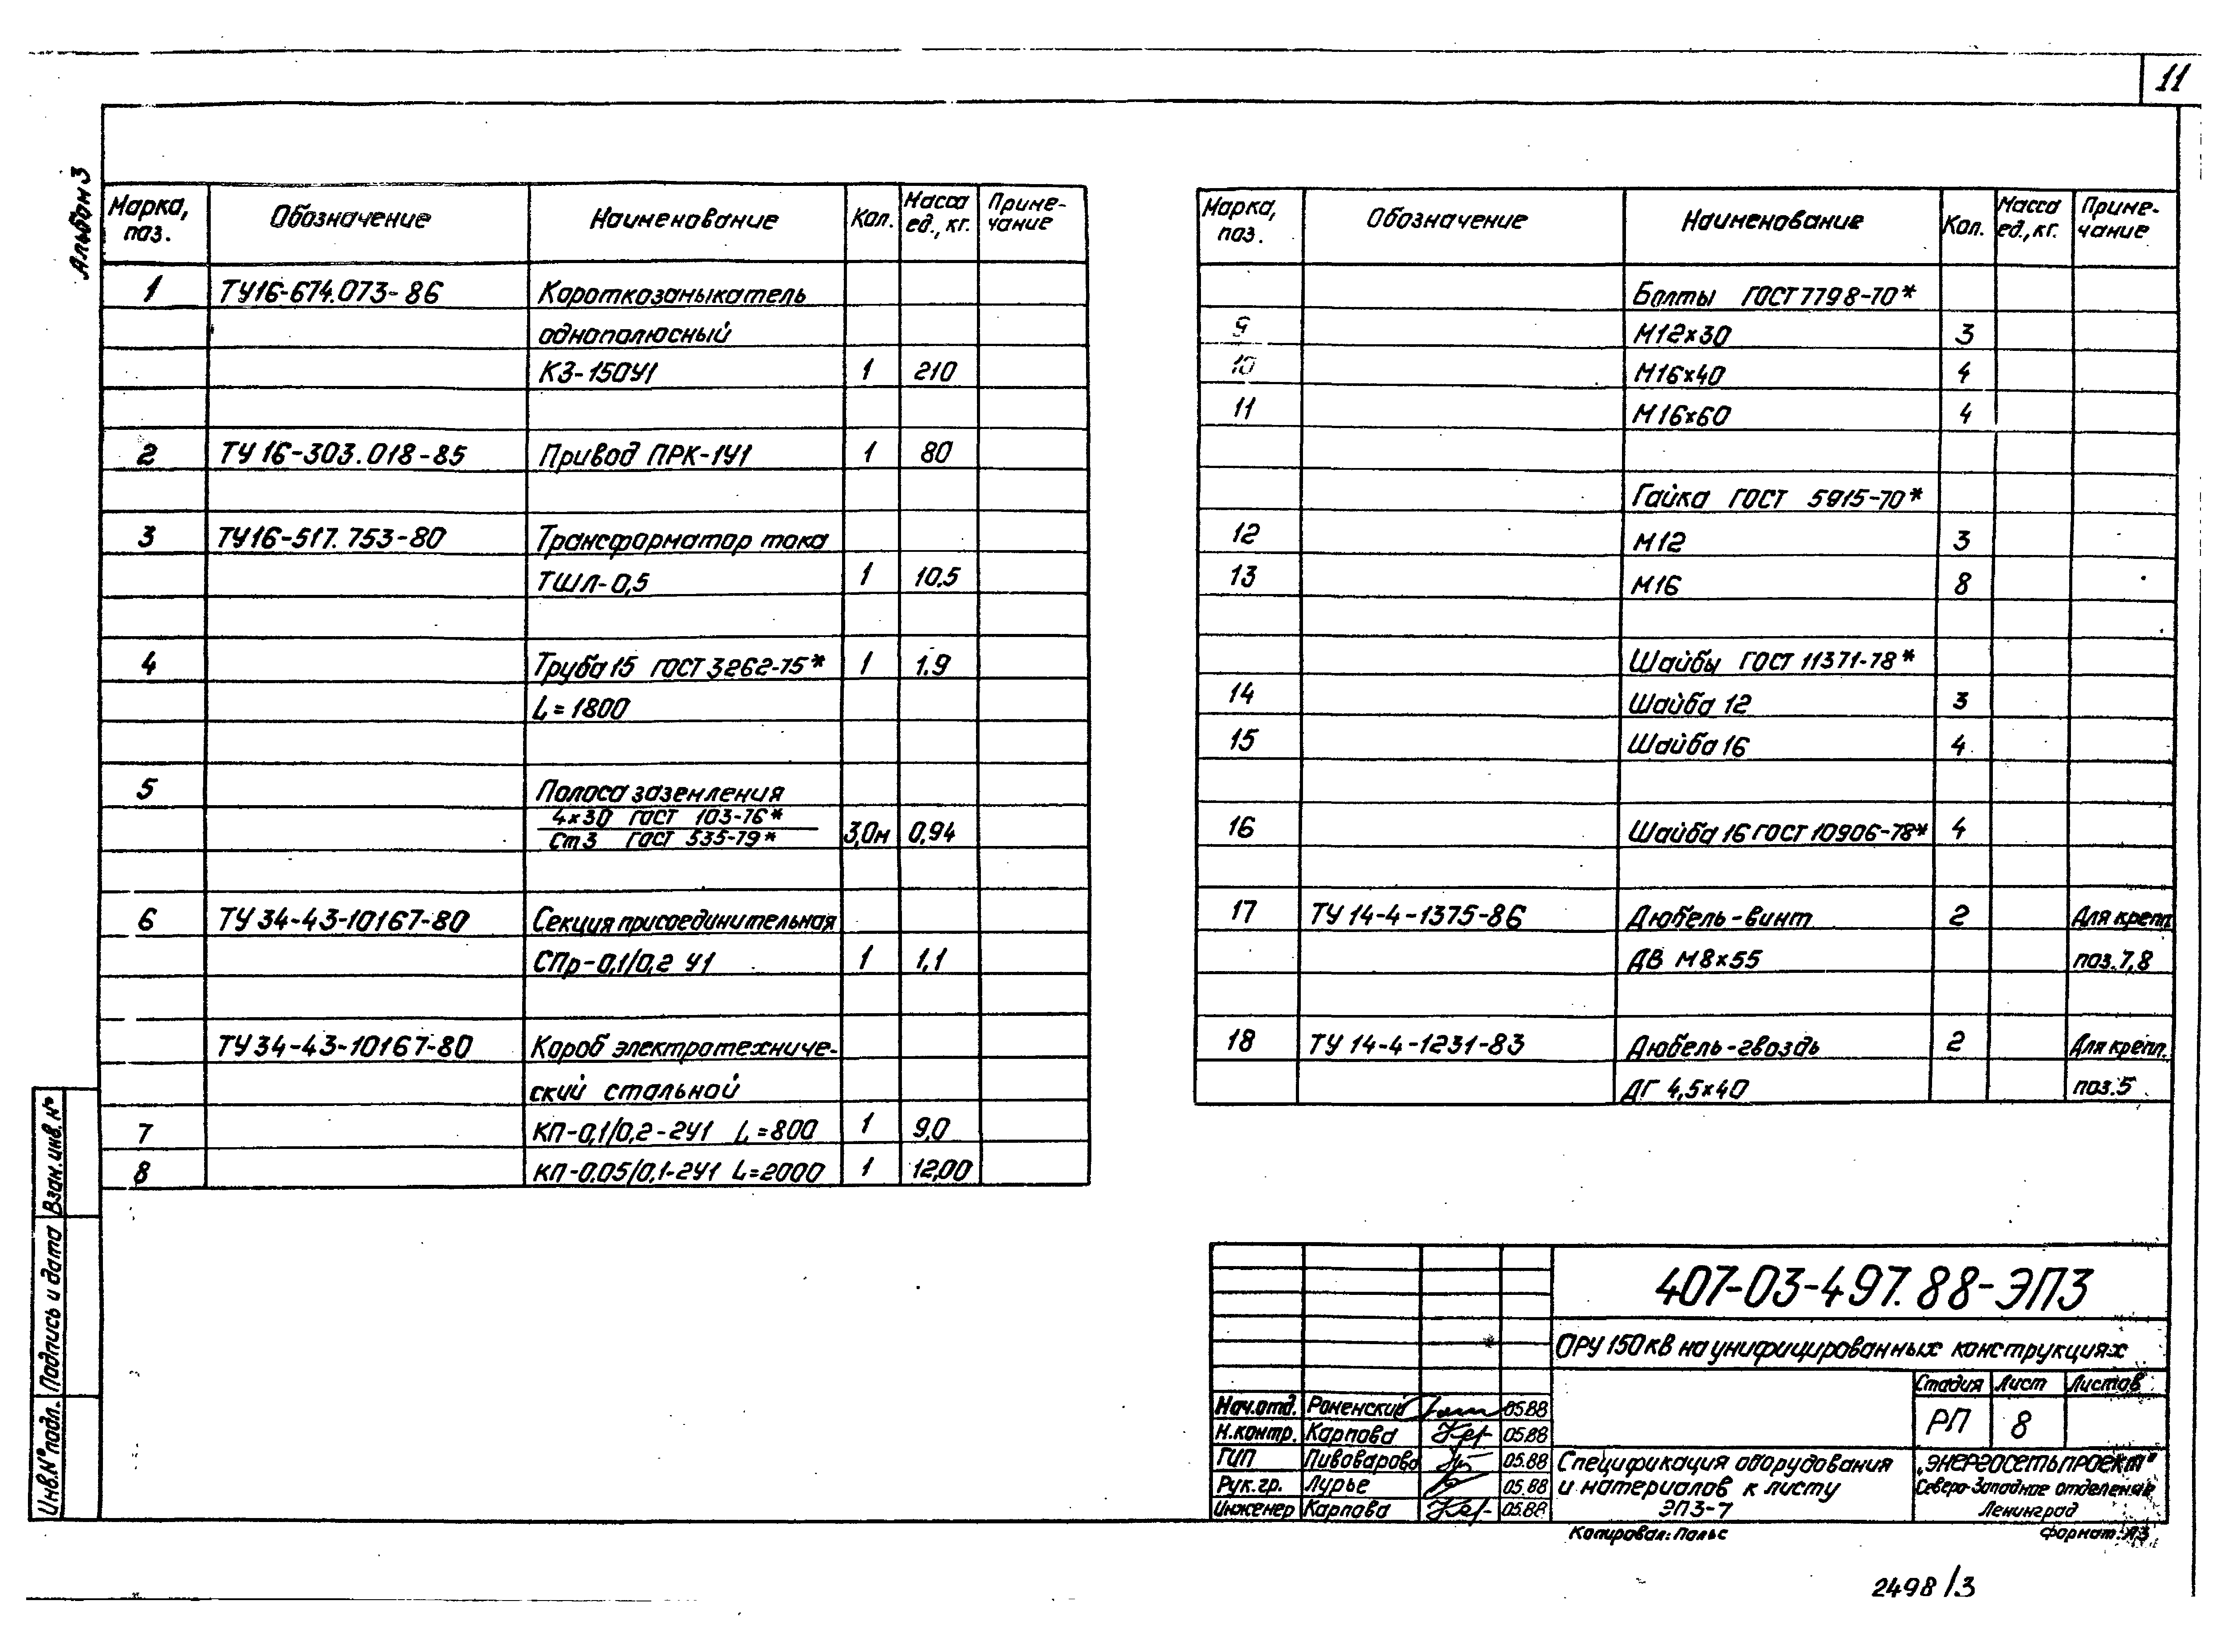 11
Альбом 3
Марка, поз. Обозначение Наименование Кол. Масса ед., кг. Примечание
1 ТУ16-674.073-86 Короткозамыкатель
однополюсный
КЗ-150У1 1 210
2 ТУ 16-303.018-85 Привод ПРК-1У1 1 80
3 ТУ16-517.753-80 Трансформатор тока
ТШЛ-0,5 1 10,5
4 Труба 15 ГОСТ 3262-75* 1 1.9
L = 1800
5 Полоса заземления
4×30 ГОСТ 103-76*
Ст3 ГОСТ 535-79* 3,0м 0,94
6 ТУ 34-43-10167-80 Секция присоединительная
СПр-0,1/0,2 У1 1 1,1
ТУ 34-43-10167-80 Короб электротехниче-
ский стальной
7 КП-0,1/0,2-2У1 L=800 1 9,0
8 КП-0.05/0,1-2У1 L=2000 1 12,00
Марка, поз. Обозначение Наименование Кол. Масса ед., кг. Примечание
Болты ГОСТ 7798-70*
9 М12×30 3
10 М16×40 4
11 М16×60 4
Гайка ГОСТ 5915-70*
12 М12 3
13 М16 8
Шайбы ГОСТ 11371-78*
14 Шайба 12 3
15 Шайба 16 4
16 Шайба 16 ГОСТ 10906-78* 4
17 ТУ 14-4-1375-86 Дюбель-винт 2 Для крепл.
ДВ М8×55 поз.7,8
18 ТУ 14-4-1231-83 Дюбель-гвоздь 2 Для крепл.
ДГ 4,5×40 поз.5
407-03-497.88-ЭП3
ОРУ 150 кВ на унифицированных конструкциях
Стадия Лист Листов
РП 8
Нач.отд. Роменский 05.88
Н.контр. Карпова 05.88
ГИП Пивоварова 05.88
Рук.гр. Лурье 05.88
Инженер Карпова 05.88
Спецификация оборудования
и материалов к листу
ЭП3-7
"ЭНЕРГОСЕТЬПРОЕКТ"
Северо-Западное отделение
Ленинград
Копировал: Польс Формат: А3
2498/3
Инв.N° подл. Подпись и дата Взам.инв.N°